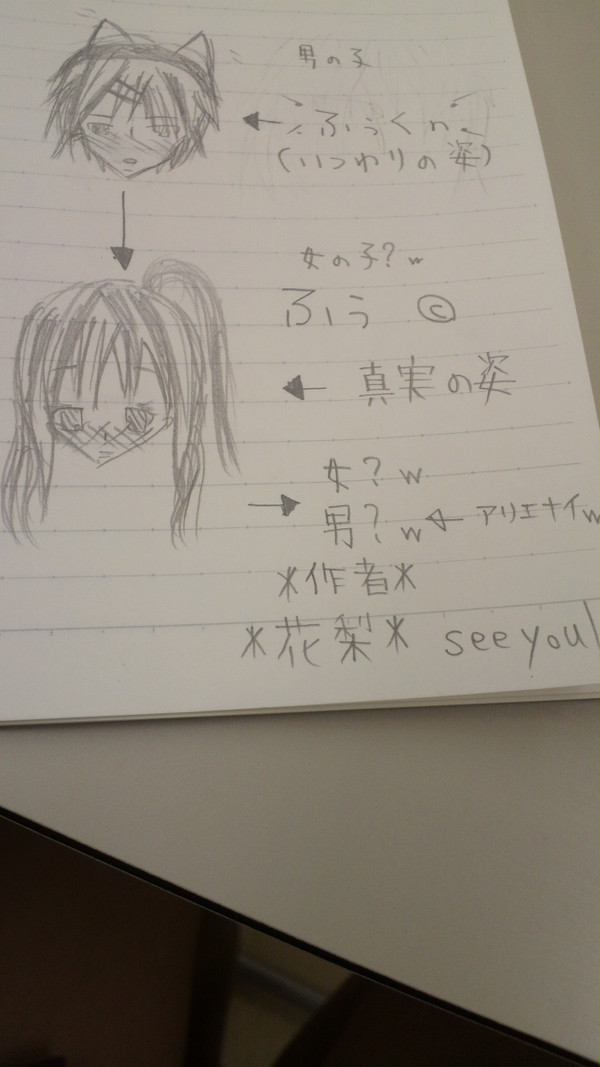 男の子
ふぅくn
(いつわりの姿)
女の子?w
ふぅ ©
真実の姿
女?w
男?w ← アリエナイw
*作者*
*花梨* see you!